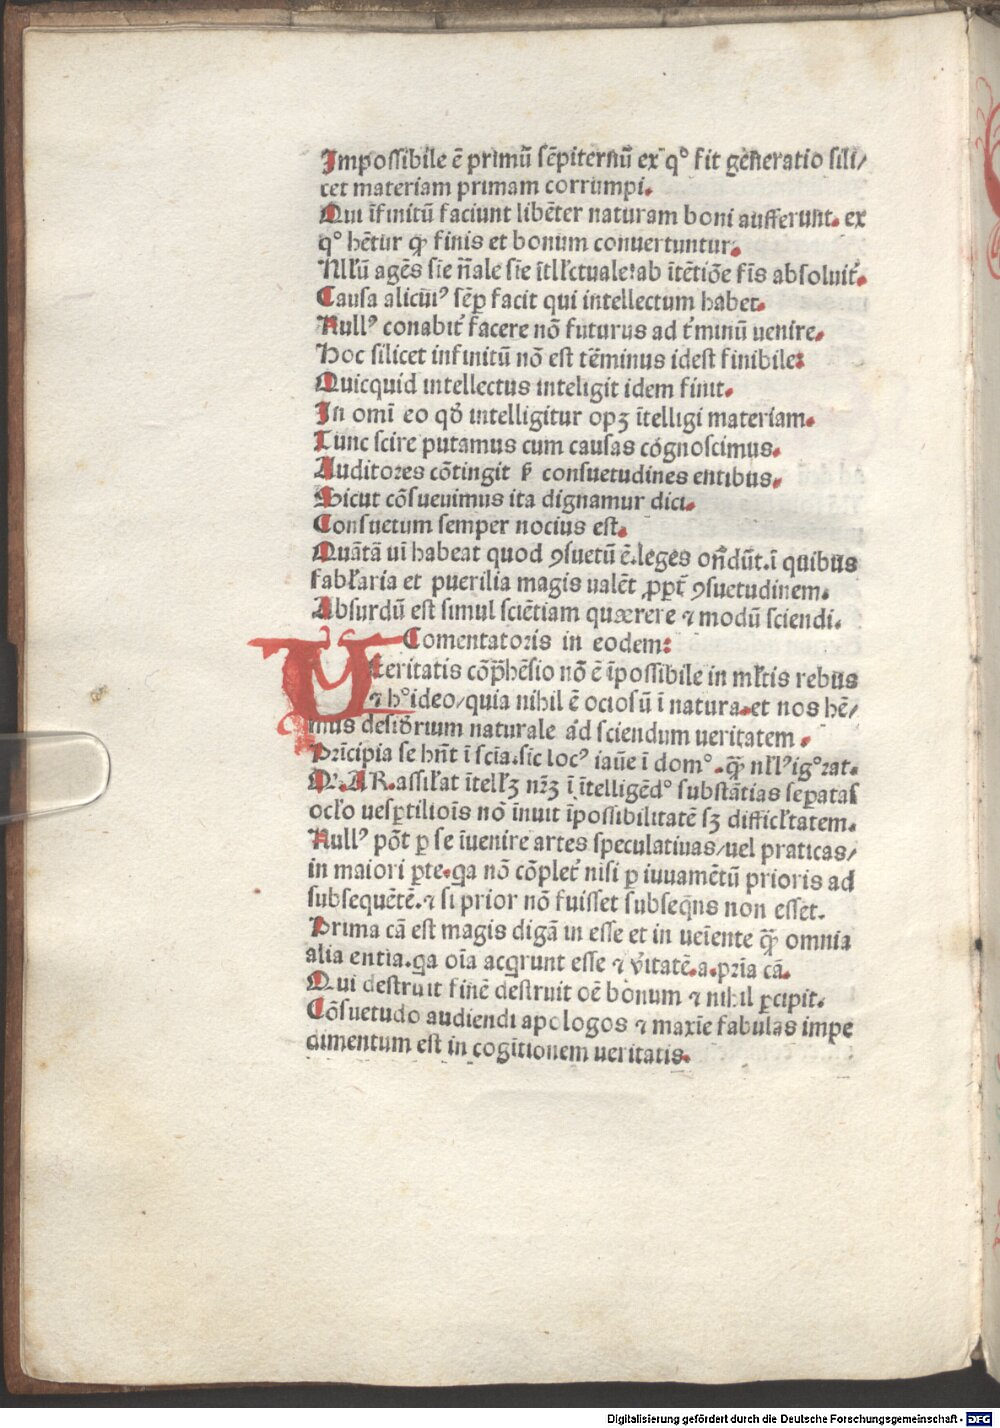 Impossibile ē primū sēpiternū ex q° fit gēneratio sili/
cet materiam primam corrumpi.
Qui īfinitū faciunt libēter naturam boni aufferunt. ex
q° hētur ꝙ finis et bonum conuertuntur.
Nllū agēs sīe n̄ale sīe ītllctuale: ab ītētiōe fīs absoluit᷑.
Causa alicuiꝰ sēꝑ facit qui intellectum habet.
Nullꝰ conabit᷑ facere nō futurus ad t᷑minū uenire.
Hoc silicet infinitū nō est tēminus idest finibile:
Quicquid intellectus inteligit idem finit.
In omī eo qd̄ intelligitur opꝫ ītelligi materiam.
Tunc scire putamus cum causas cognoscimus.
Auditores cōtingit ẜ consuetudines entibus.
Sicut cōsueuimus ita dignamur dici.
Consuetum semper nocius est.
Quātā uī habeat quod ꝯsuetū ē. leges on̄dūt. ī quibus
fabłaria et puerilia magis ualēt ꝓpt᷑ ꝯsuetudinem.
Absurdū est simul sciētiam quærere ⁊ modū sciendi.
Comentatoris in eodem:
Ueritatis cōp̄hēsio nō ē īpossibile in młtis rebus
⁊ h° ideo/quia nihil ē ociosū ī natura. et nos hē/
mus desiōrium naturale ad sciendum ueritatem.
Prīcipia se hn̄t ī scīa. sīc locꝰ iaūe ī dom°. q̄ꝫ nłlꝰ ig°rat.
M. A R. assiłat ītellꝫ nr̄ꝫ ī ītelligēd° substātias seꝑatas
ocło uesꝑtilioīs nō īnuit īpossibilitatē sꝫ difficłtatem.
Nullꝰ pōt ꝑ se īuenire artes speculatiuas/uel praticas/
in maiori ꝑte. qa nō cōplet᷑ nisi ꝑ iuuamētū prioris ad
subsequētē. ⁊ si prior nō fuisset subseq̄ns non esset.
Prima cā est magis digā in esse et in ueīente q̄ꝫ omnia
alia entia. qa oīa acqrunt esse ⁊ ūitatē. a. prīa cā.
Qui destruit finē destruit oē bonum ⁊ nihil ꝑcipit.
Cōsuetudo audiendi apologos ⁊ maxīe fabulas impe
dimentum est in cogītionem ueritatis.
Digitalisierung gefördert durch die Deutsche Forschungsgemeinschaft - DFG